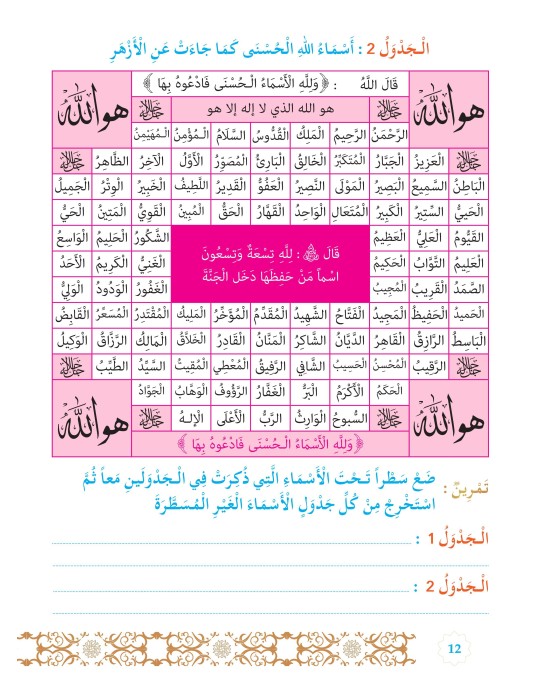 الْـجَدْوَلُ 2 : أَسْمَاءُ اللهِ الْحُسْنَى كَمَا جَاءَتْ عَنِ الْأَزْهَرِ
هو الله قَالَ اللَّهُ : ﴿ وَلِلَّهِ الْأَسْمَاءُ الْـحُسْنَى فَادْعُوهُ بِهَا ﴾ هو الله
جل جلاله هو الله الذي لا إله إلا هو جل جلاله
الرَّحْمَنُ الرَّحِيمُ الْمَلِكُ الْقُدُّوسُ السَّلَامُ الْـمُؤْمِنُ الْـمُهَيْمِنُ
جل جلاله الْعَزِيزُ الْجَبَّارُ الْمُتَكَبِّرُ الْخَالِقُ الْبَارِئُ الْمُصَوِّرُ الْأَوَّلُ الْآخِرُ الظَّاهِرُ جل جلاله
الْبَاطِنُ السَّمِيعُ الْبَصِيرُ الْمَوْلَى النَّصِيرُ الْعَفُوُّ الْقَدِيرُ اللَّطِيفُ الْخَبِيرُ الْوِتْرُ الْجَمِيلُ
الْحَيِيُّ السِّتِيرُ الْكَبِيرُ الْمُتَعَالِ الْوَاحِدُ الْقَهَّارُ الْحَقُّ الْمُبِينُ الْقَوِيُّ الْمَتِينُ الْحَيُّ
الْقَيُّومُ الْعَلِيُّ الْعَظِيمُ الشَّكُورُ الْحَلِيمُ الْوَاسِعُ
قَالَ ﷺ : لِلَّهِ تِسْعَةٌ وَتِسْعُونَ
الْعَلِيمُ التَّوَّابُ الْحَكِيمُ الْغَنِيُّ الْكَرِيمُ الْأَحَدُ
اسْماً مَنْ حَفِظَهَا دَخَلَ الْجَنَّةَ
الصَّمَدُ الْقَرِيبُ الْمُجِيبُ الْغَفُورُ الْوَدُودُ الْوَلِيُّ
الْحَمِيدُ الْحَفِيظُ الْمَجِيدُ الْفَتَّاحُ الشَّهِيدُ الْمُقَدِّمُ الْمُؤَخِّرُ الْمَلِيكُ الْمُقْتَدِرُ الْمُسَعِّرُ الْقَابِضُ
الْبَاسِطُ الرَّازِقُ الْقَاهِرُ الدَّيَّانُ الشَّاكِرُ الْمَنَّانُ الْقَادِرُ الْخَلَّاقُ الْمَالِكُ الرَّزَّاقُ الْوَكِيلُ
جل جلاله الرَّقِيبُ الْمُحْسِنُ الْحَسِيبُ الشَّافِي الرَّفِيقُ الْمُعْطِي الْمُقِيتُ السَّيِّدُ الطَّيِّبُ جل جلاله
هو الله الْحَكَمُ الْأَكْرَمُ الْبَرُّ الْغَفَّارُ الرَّؤُوفُ الْوَهَّابُ الْجَوَادُ هو الله
جل جلاله السُّبوحُ الْوَارِثُ الرَّبُّ الْأَعْلَى الْإِلـهُ جل جلاله
﴿ وَلِلَّهِ الْأَسْمَاءُ الْـحُسْنَى فَادْعُوهُ بِهَا ﴾
تَمْرِينٌ : ضَعْ سَطْراً تَـحْتَ الْأَسْمَاءِ الَّتِي ذُكِرَتْ فِي الْـجَدْوَلَينِ مَعاً ثُمَّ
اسْتَخْرِجْ مِنْ كُلِّ جَدْوَلٍ الْأَسْمَاءَ الْغَيْرِ الْمُسَطَّرَةَ
الْـجَدْوَلُ 1 :
الْـجَدْوَلُ 2 :
12